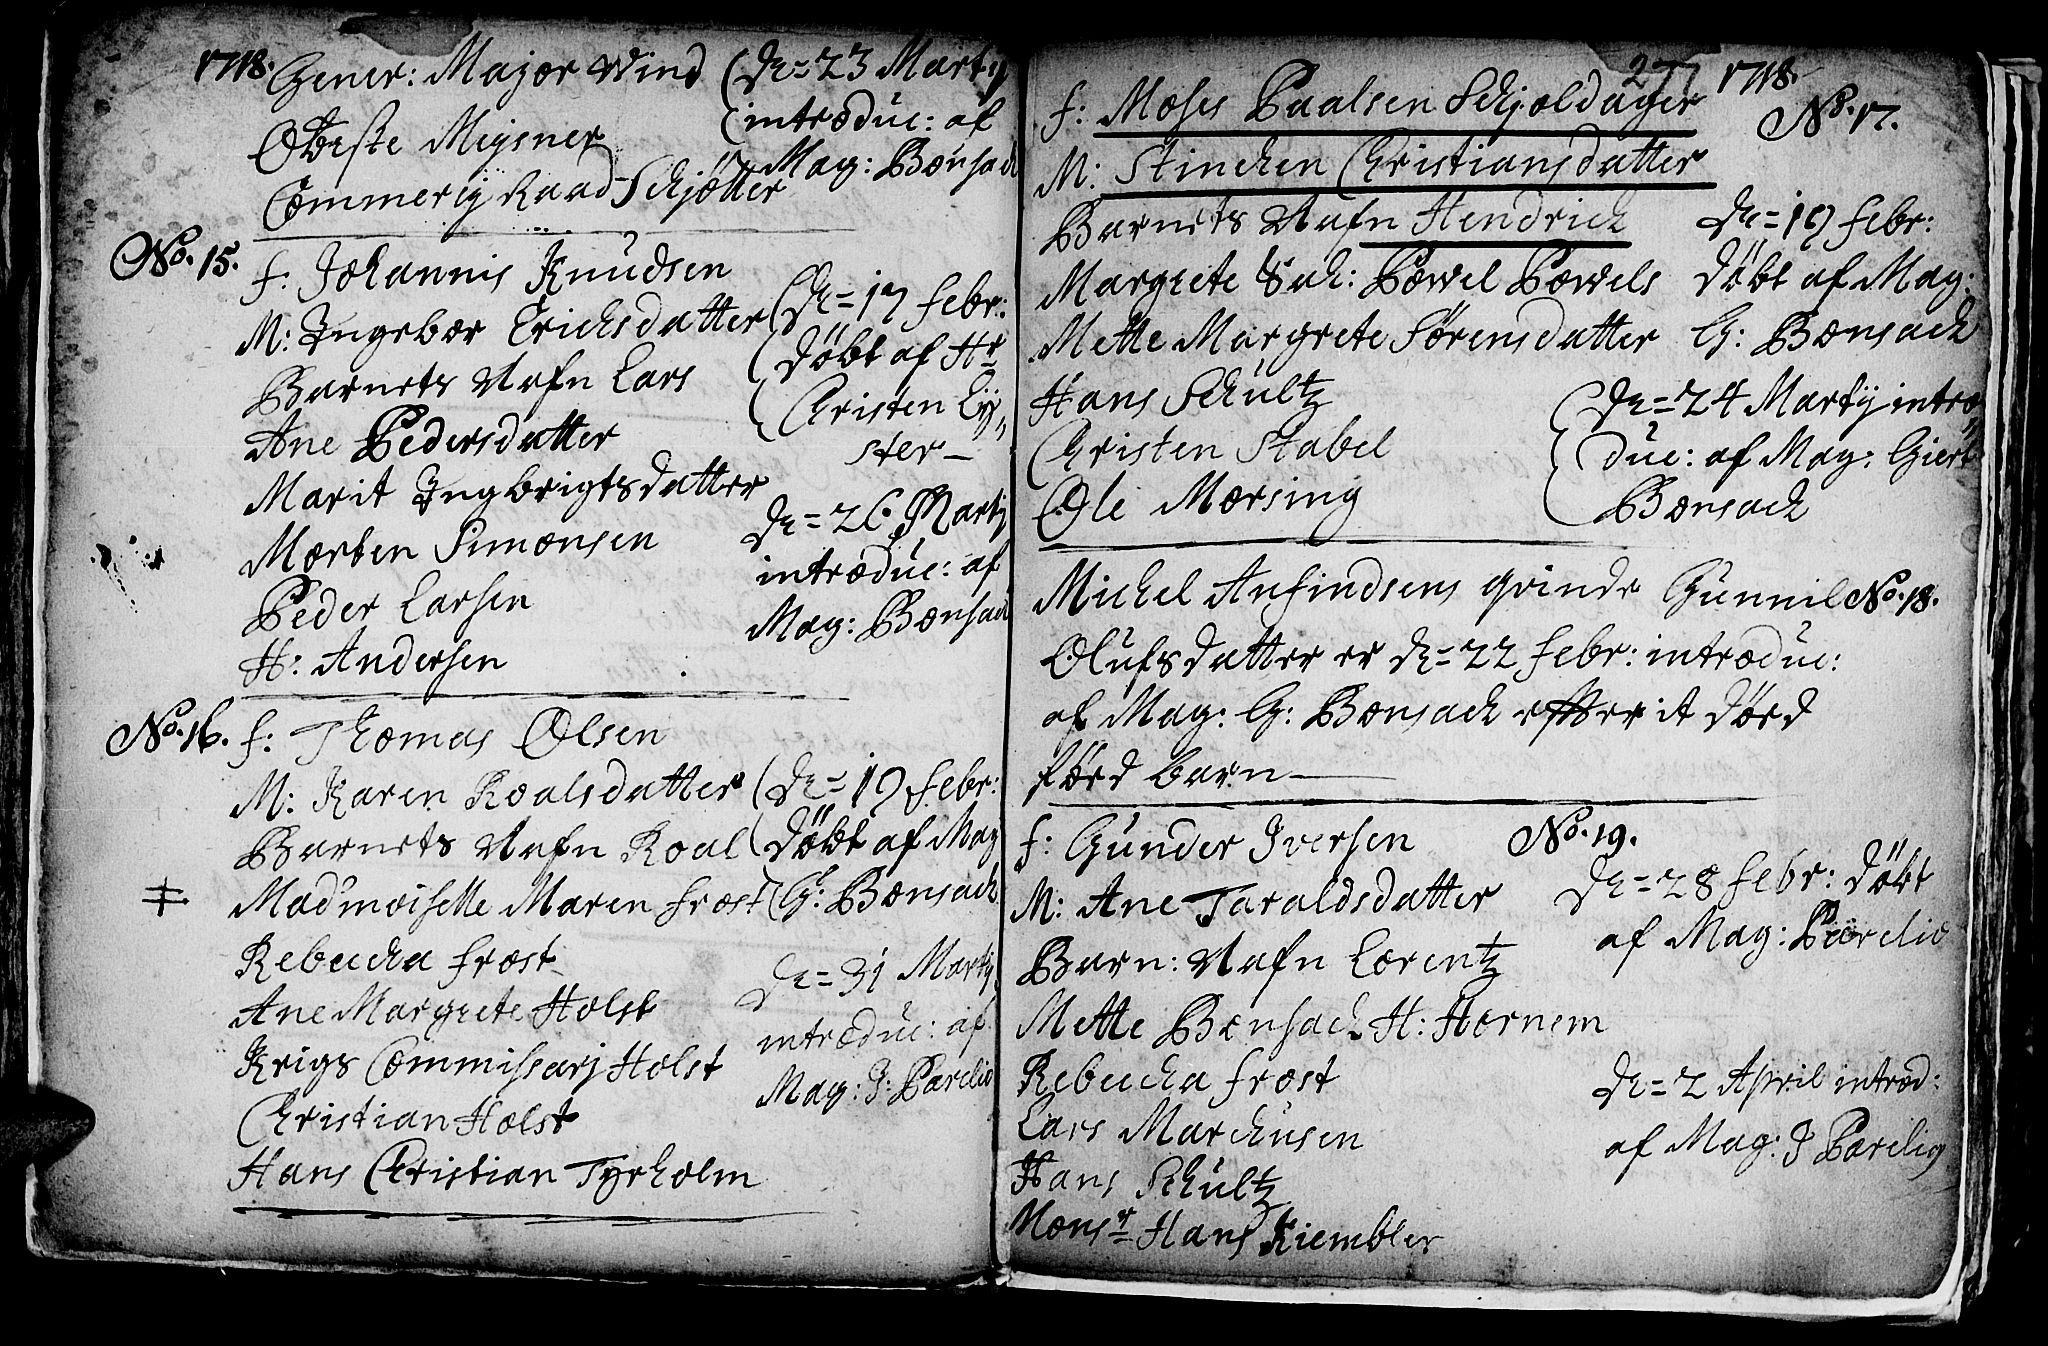 1718.
Gener: Major Wind
Obriste Meysner
Commercij Raad Schjøtter
dn = 23 Martij
introduc: af
Mag: Bonsach
No. 15.
f: Johannis Knudsen
M: Ingebor Erichsdatter
Barnets Nafn Lars
Ane Pedersdatter
Marit Ingbrigtsdatter
Morten Simonsen
Peder Larsen
H: Andersen
dn = 17 febr:
døbt af Hr
Christen Ly„
ster —
dn = 26 Martij
introduc: af
Mag: Bonsach
No. 16.
f: Thomas Olsen
M: Karen Roalsdatter
Barnets Nafn Roal
Madmoiselle Maren frost
Rebecka frost
Ane Margrete Holst
Krigs Commissarj Holst
Christian Holst
Hans Christian Tyrholm
dn = 19 febr:
døbt af Mag
G: Bonsach
dn = 31 Martij
introduc: af
Mag: J: Parelio
277 1718.
No. 17.
f: Moses Paalsen Schjoldager
M: Stinchen Christiansdatter
Barnets Nafn Hendrich
Margrete Sal: Powel Powels
Mette Margrete Sørensdatter
Hans Schultz
Christen Stabel
Ole Morsing
dn = 19 febr:
døbt af Mag:
G: Bonsach
dn = 24 Martij intro„
duc: af Mag: Giert
Bonsach
No. 18.
Michel Anfindsens qvinde Gunnil
Olufsdatter er dn = 22 febr: introduc:
af Mag: G: Bonsach effter it død
fød barn —
No. 19.
f: Gunder Iversen
M: Ane Taraldsdatter
Barn: Nafn Lorentz
Mette Bonsach H: Hornem
Rebecka frost
Lars Marchusen
Hans Schultz
Monsr Hans Kiembler
dn = 28 febr: døbt
af Mag: Parelio
dn = 2 April introd:
af Mag: J Parelig